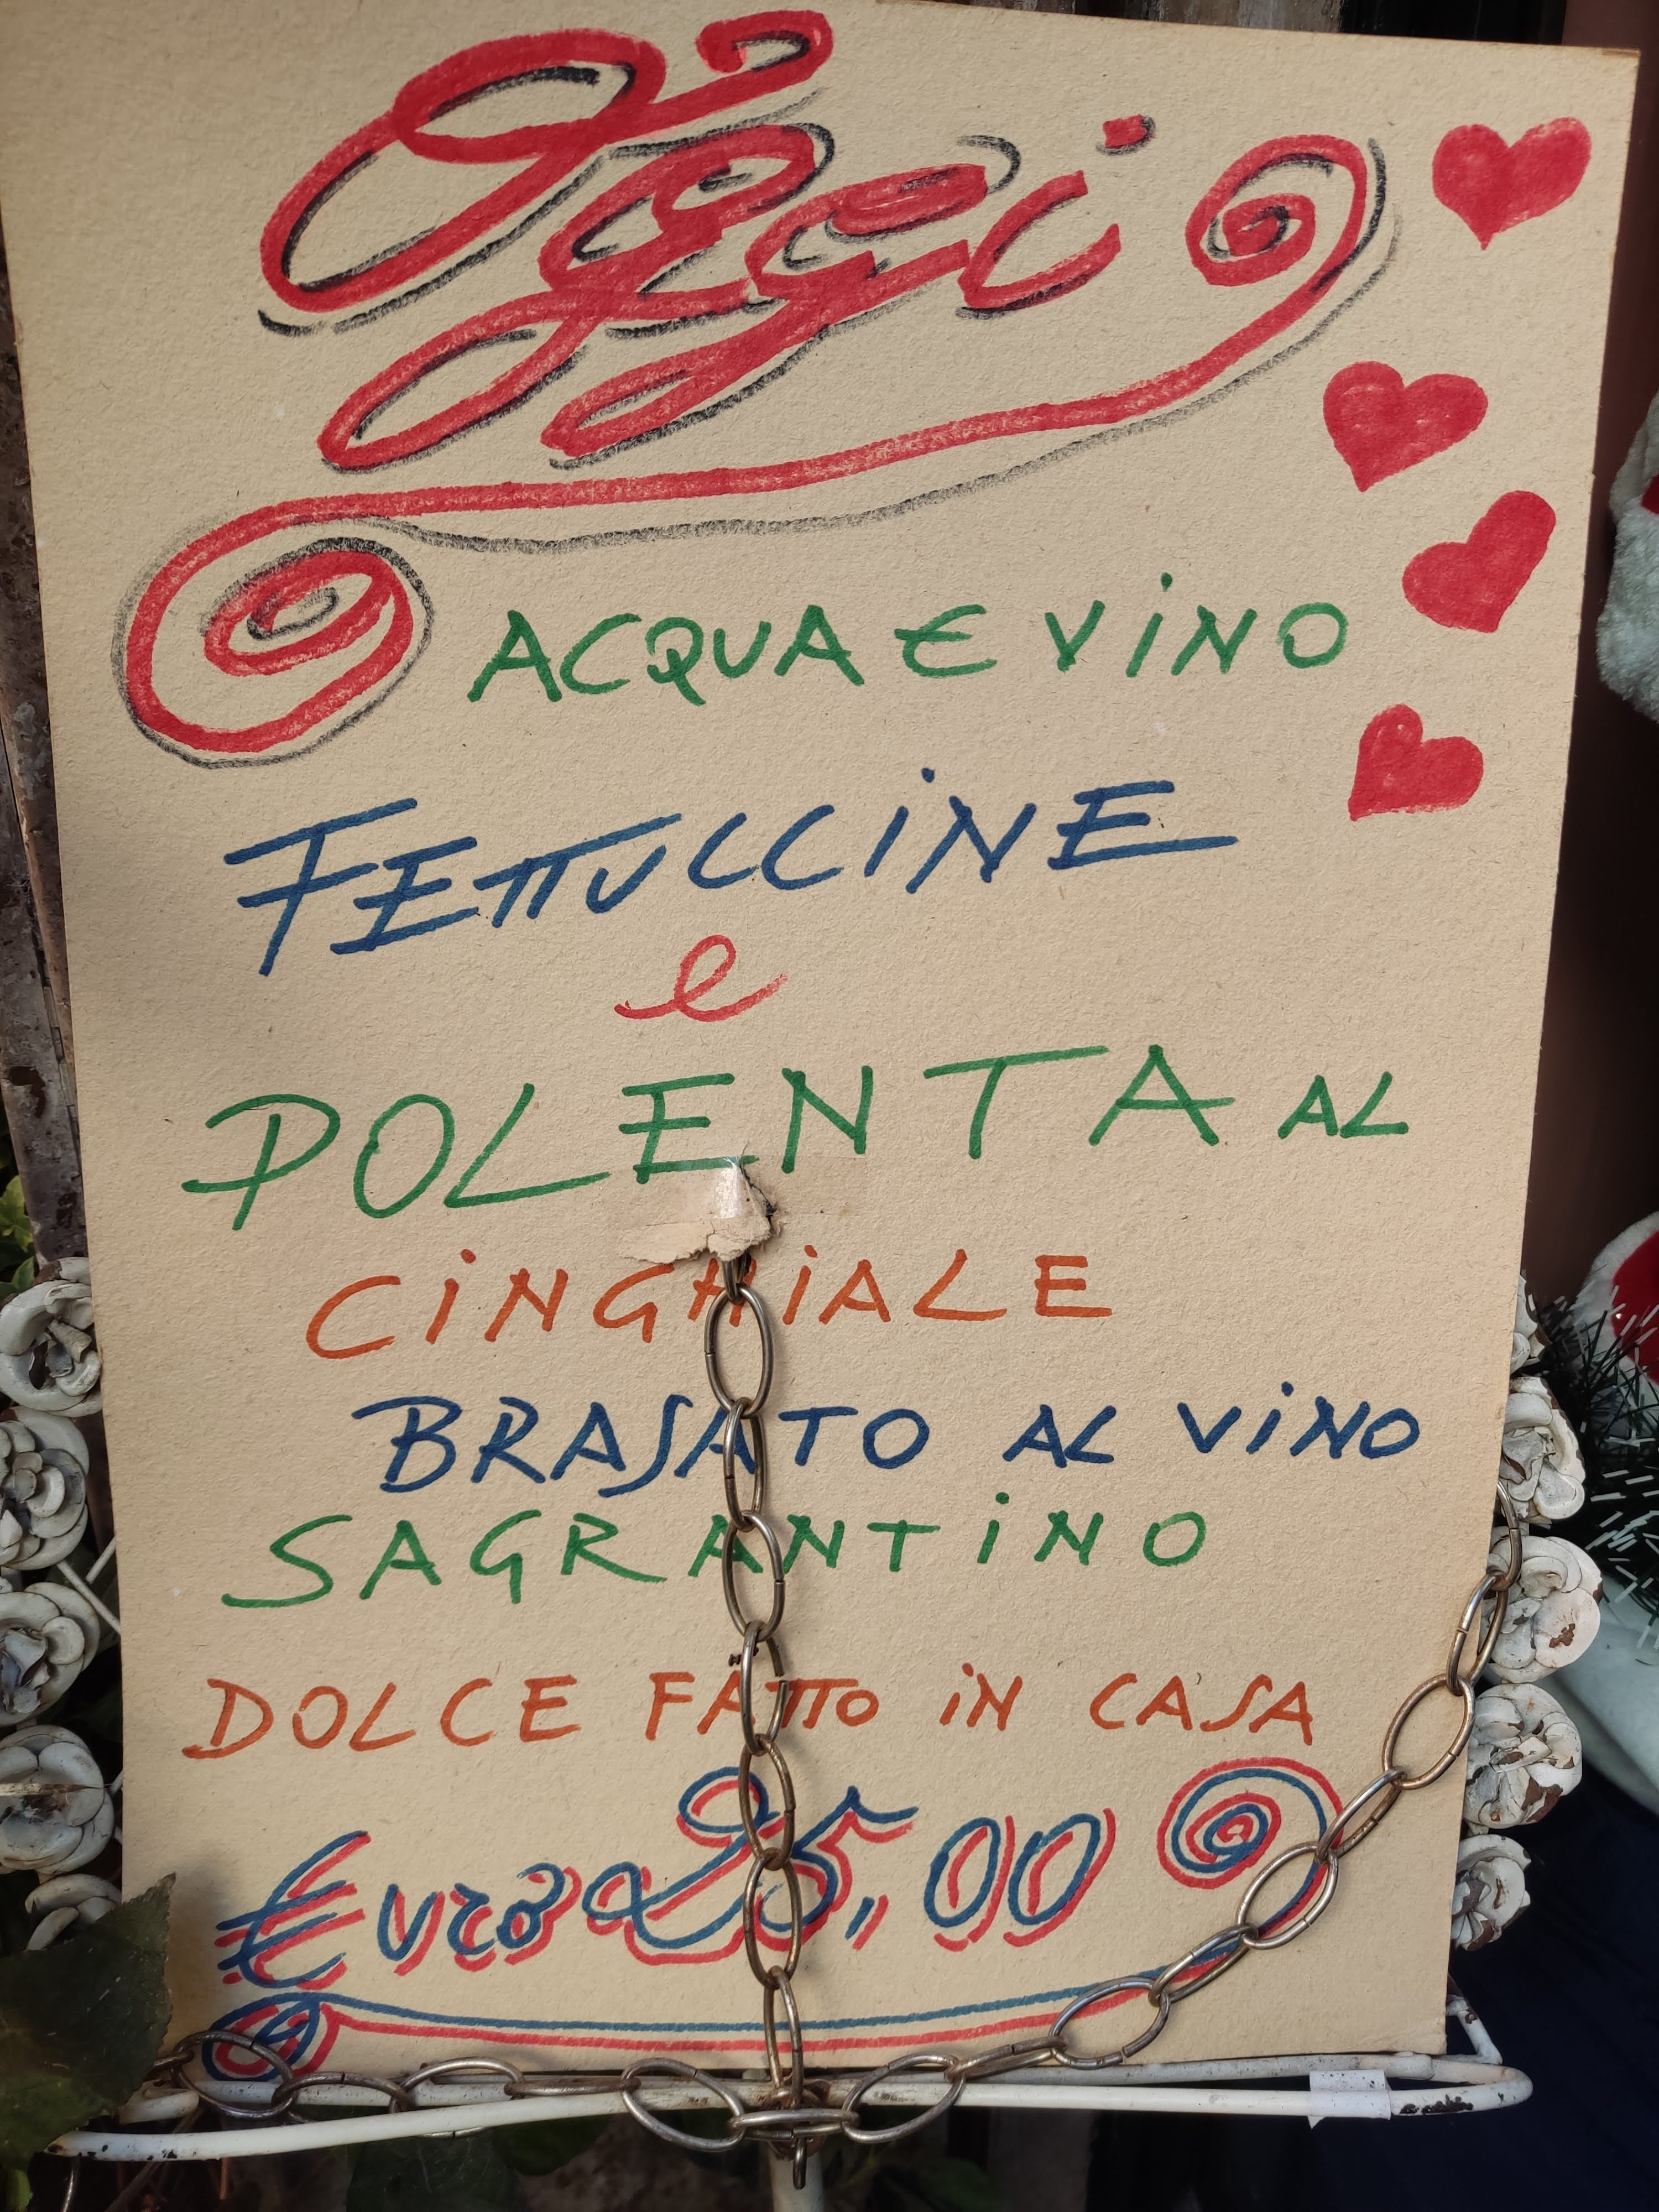 Oggi
ACQUA E VINO
FETTUCCINE
e
POLENTA AL
CINGHIALE
BRASATO AL VINO
SAGRANTINO
DOLCE FATTO IN CASA
€uro 25,00